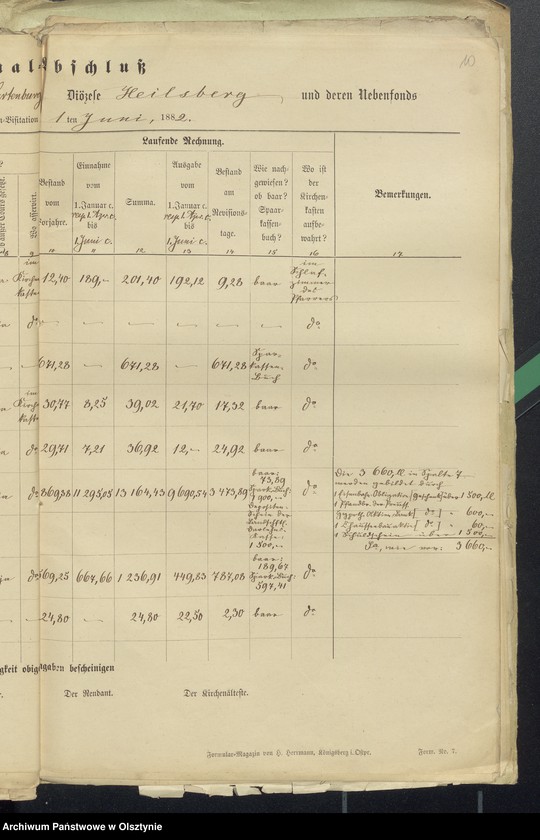 10
albschluß
Diözese Heilsberg und deren Nebenfonds
n-Visitation 1 ten Juni, 1882.
Laufende Rechnung.
Bestand vom Vorjahre.
Einnahme vom 1. Januar c. resp. 1. Apr. c. bis 1. Juni c.
Summa.
Ausgabe vom 1. Januar c. resp. 1. Apr. c. bis 1. Juni c.
Bestand am Revisions-tage.
Wie nach-gewiesen? ob baar? Spaar-kassen-buch?
Wo ist der Kirchen-kasten aufbe-wahrt?
Bemerkungen.
12 13 14 15 16 17
im Kirchen-kasten 12,40 189,– 201,40 192,12 9,28 baar im Schlaf-zimmer des Pfarrers
do — — — — — — do
671,28 — 671,28 — 671,28 Spar-kassen-Buch do
im Kirchen-kasten 30,77 8,25 39,02 21,70 17,32 baar do
do 29,71 7,21 36,92 12,– 24,92 baar do
do 11 295,05 13 164,43 9 690,54 3 473,89 baar: 73,89 Spark. Buch: 1 900,– 1 500,– do
Die 3 660 M in Spalte 7 werden gebildet durch
1 500 M
600,–
60,–
1 Schuldschein über 1 500,–
Sa, wie vor: 3 660,–
do 569,25 667,66 1 236,91 449,83 787,08 baar: 189,67 Spark. Buch: 597,41 do
24,80 — 24,80 22,50 2,30 baar do
gkeit obiger Angaben bescheinigen
Der Rendant. Der Kirchenälteste.
Formular-Magazin von H. Herrmann, Königsberg i. Ostpr. Form. No. 7.
Archiwum Państwowe w Olsztynie